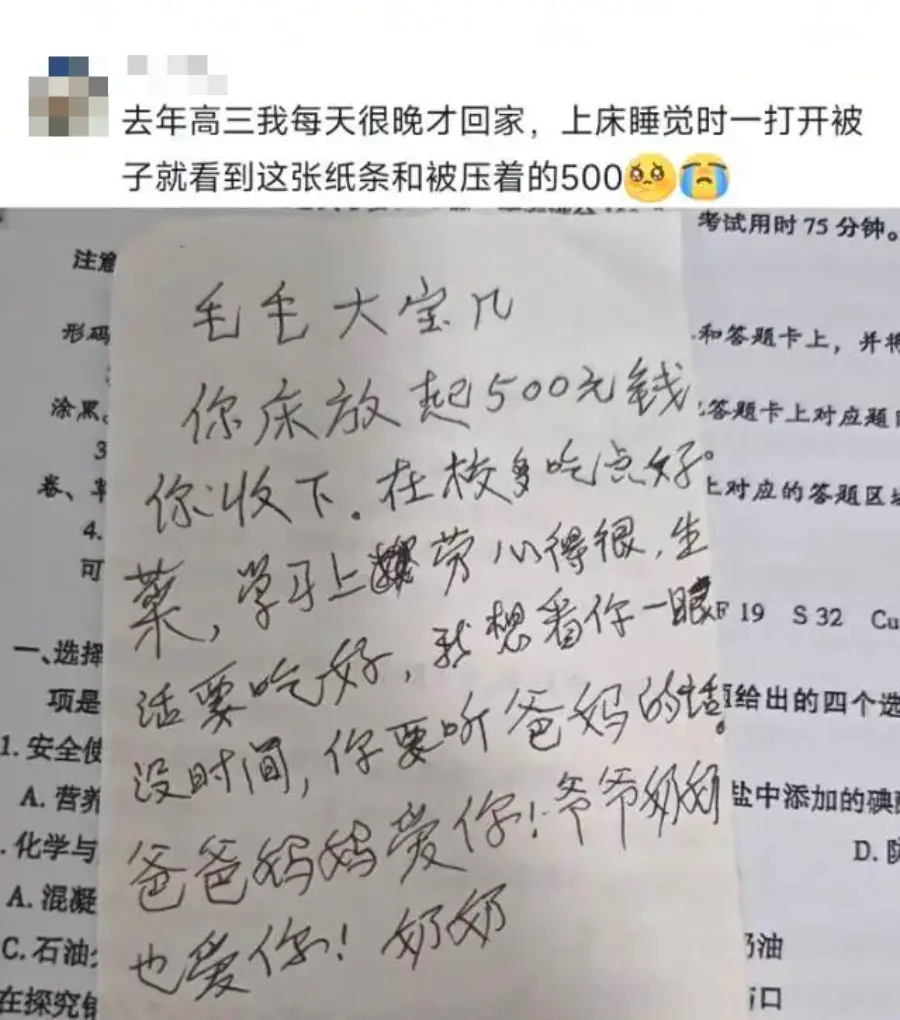 去年高三我每天很晚才回家，上床睡觉时一打开被
子就看到这张纸条和被压着的500🥺😭
考试用时75分钟。
注意
形码
和答题卡上，并将
涂黑。
答题卡上对应题目
3
卷、草
上对应的答题区域
4.
可
F 19 S 32 Cu
一、选择
项是
题给出的四个选
1. 安全使
A. 营养
盐中添加的碘酸
. 化学与
D. 防
A. 混凝
C. 石油
奶油
在探究铁
与口
毛毛大宝几
你床放起500元钱
你收下。在校多吃点好。
菜，学习上劳心得很，生
活要吃好，我想看你一眼
没时间，你要听爸妈的话。
爸爸妈妈爱你！爷爷奶奶
也爱你！奶奶